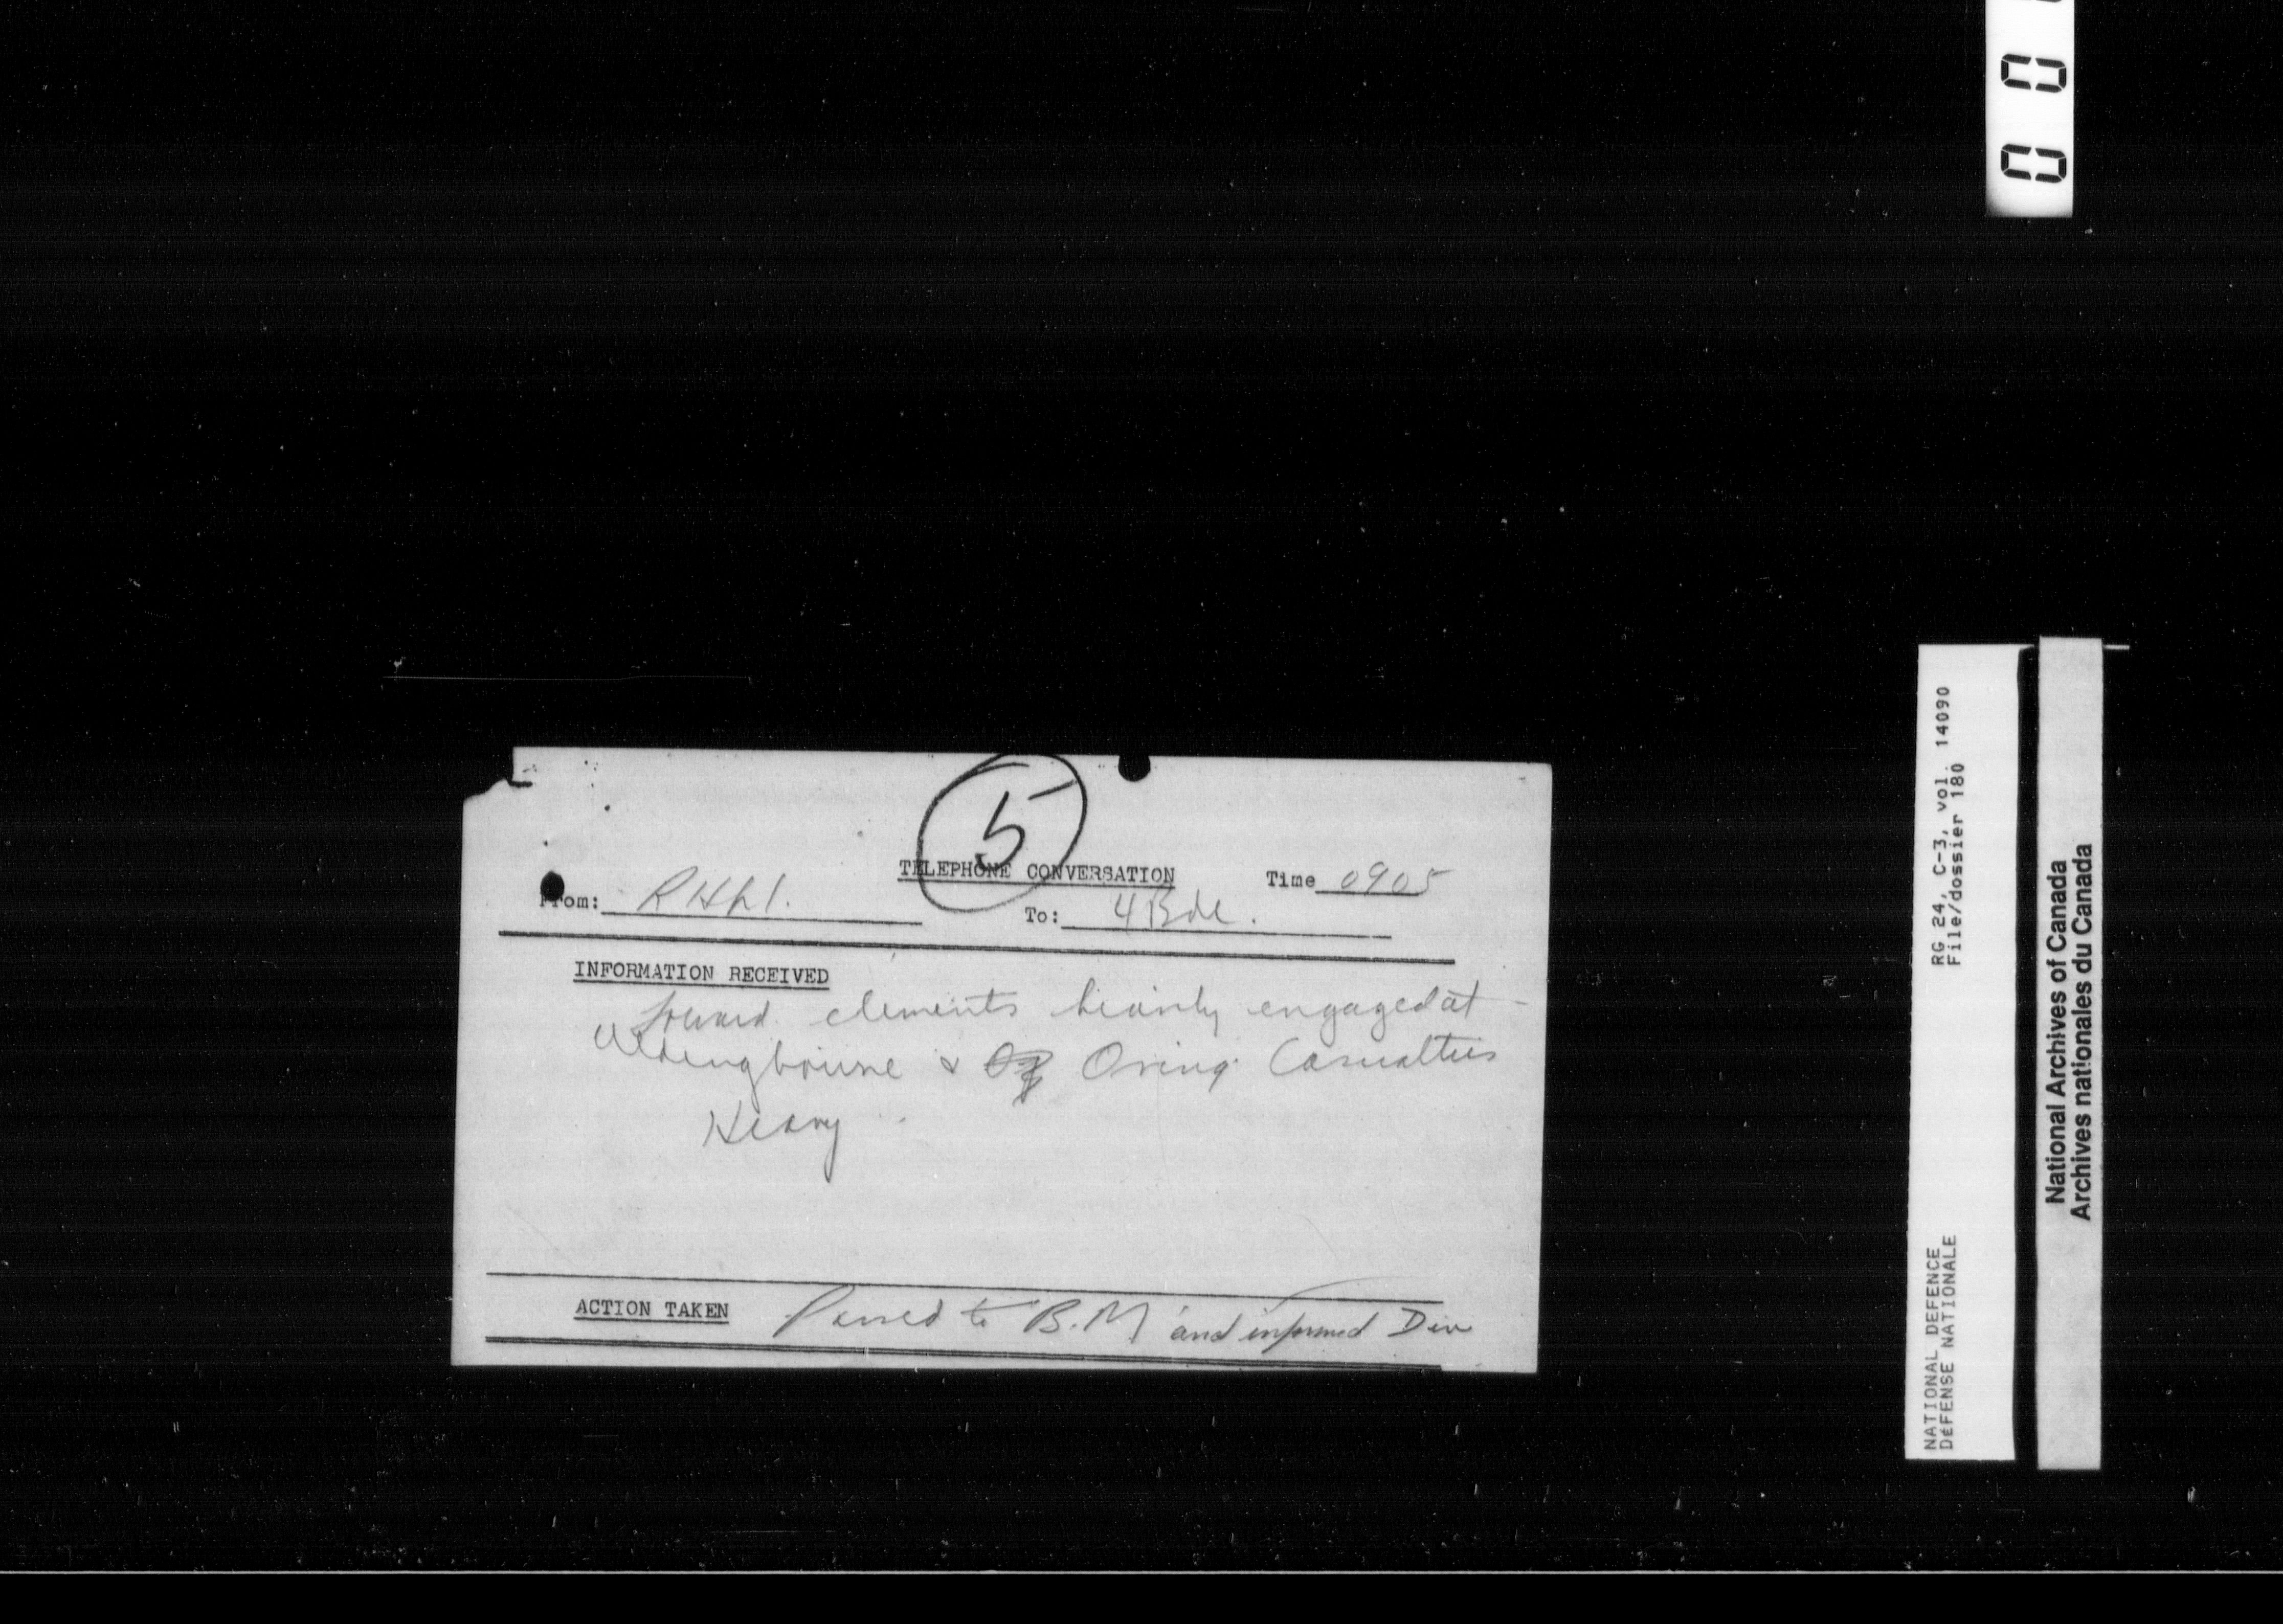 0 0
5
TELEPHONE CONVERSATION Time 0905
From: RHLI. To: 4 Bde.
INFORMATION RECEIVED
forward elements heavily engaged at
& Oring Casualties
Heavy
ACTION TAKEN Passed to B.M and informed Div
RG 24, C-3, vol. 14090
File/dossier 180
NATIONAL DEFENCE
DÉFENSE NATIONALE
National Archives of Canada
Archives nationales du Canada